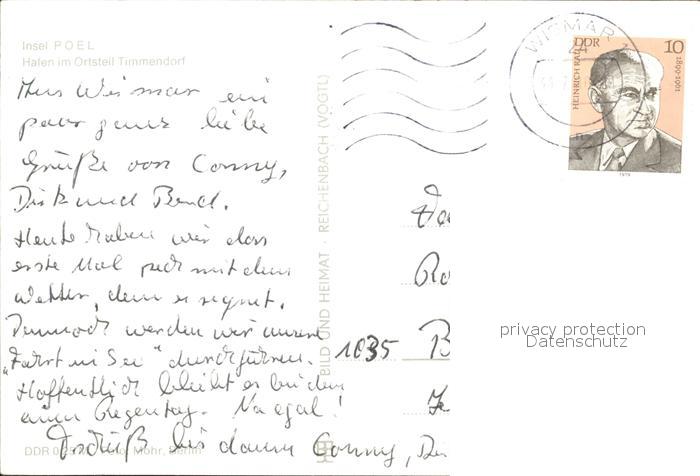 Insel POEL
Hafen im Ortsteil Timmendorf
Aus Wismar ein
paar ganz liebe
Grüße von Conny,
Dirk und Bernd.
Heute haben wir das
erste Mal pech mit dem
Wetter, denn es regnet.
Dennoch werden wir unsere
"Fahrt in See" durchführen.
Hoffentlich bleibt es bei dem
einen Regentag. Na egal!
Tschüß bis dann Conny,
DDR
Mohr, Berlin
BILD UND HEIMAT · REICHENBACH (VOGTL)
WISMAR
DDR 10
HEINRICH RAU
1899-1961
1979
1035
privacy protection
Datenschutz